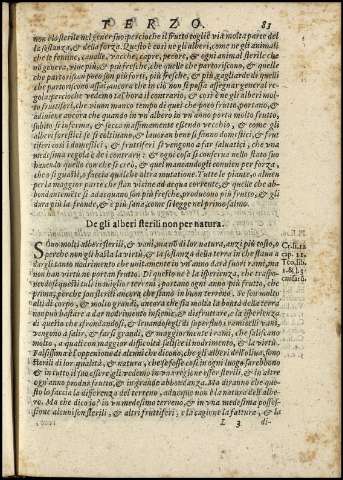 TERZO. 83
non è lo sterile nel gener suo: percioche il frutto toglie via molta parte del
la sostanza, & della forza. Questo è così negli alberi, come ne gli animali
che le femine, cavalle, vacche, capre, pecore, & ogni animal sterile che
nō genera, vive più, & più fresche, che quelle che partoriscono, & quelle
che partoriscon poco son più forti, più fresche, & più gagliarde di quelle
che partoriscono assai, ancora che in ciò non si possa assegnar general re
gola: percioche vedemo tal'hora il contrario, & così è ne gli alberi mol-
to fruttiferi, che vivon manco tempo di quei che poco frutto, portano, &
adiviene ancora che quando in vn albero in vn'anno porta molto frutto,
subito si inferma, & secca massimamente essendo vecchio, & come gli
alberi forestieri, se si coltivano, & lavoran bene si fanno domestici, & frut
tiferi così i domestici, & fruttiferi si vengono a far salvatici, che vna
medesima regola è de i contrari; & ogni cosa si conserva nello stato suo
facendo quello con che si creò, & quel mancandogli convien per forza,
che o si guasti, o faccia qualche altra mutatione. Tutte le piante, o almen
per la maggior parte che stan vicine ad acqua corrente, & quelle che abbon-
dantemēte si adacquano son più fresche, producono più frutto, & gli
dura più la fronde, & è più sana, come si legge nel primo salmo.
De gli alberi sterili non per natura.
Sono molti alberi sterili, & vani, ma nō di lor natura, anzi più tosto, o
perche non gli basta la virtù, & la sostanza della terra in che stanno a
dargli tanto nudrimento che unitamente in vn'anno darà fuori rami, ma
non han virtù ne portan frutto. Di questo ne è la isperienza, che traspo-
nēdosi questi tali in miglior terreni, portano ogni anno più frutto, che
prima; perche son sterili ancora che stanno in buon terreno, se son molto
alti di corpo, & molto grandi, ancora che sia molta la bontà della terra
non può bastare a dar nodrimento insieme, & disfruttare, e la isperienza
di questo che sfrondandosi, & levandosegli di superfluo i ramicelli vani,
vengono a salir, & farsi grandi, & maggiormente i vani, che salgano
molto, a quali con maggior difficoltà salisse il nodrimento, & la virtù.
Falsissima è l'oppenione di alcuni che dicono, che gli alberi dell'oliva, sono
sterili di lor qualità, & natura, che se fosse così in ogni luogo sarebbono
& in tutto il suo essere gli vedemo in vna regione esser sterili, & in altre
ogni anno produn frutto, & in grande abbondanza. Ma diranno che que-
sto lo faccia la differenza del terreno, adunque non è la natura dell'albe-
ro. Ma che dico io? in vn medesimo terreno, & in vna medesima posses-
sione alcuni son sterili, & altri fruttiferi; e la cagione la fattura, & la
L 3 di-
Cr. li. 12
cap. 12.
Teo. lib.
1. & l. 3.